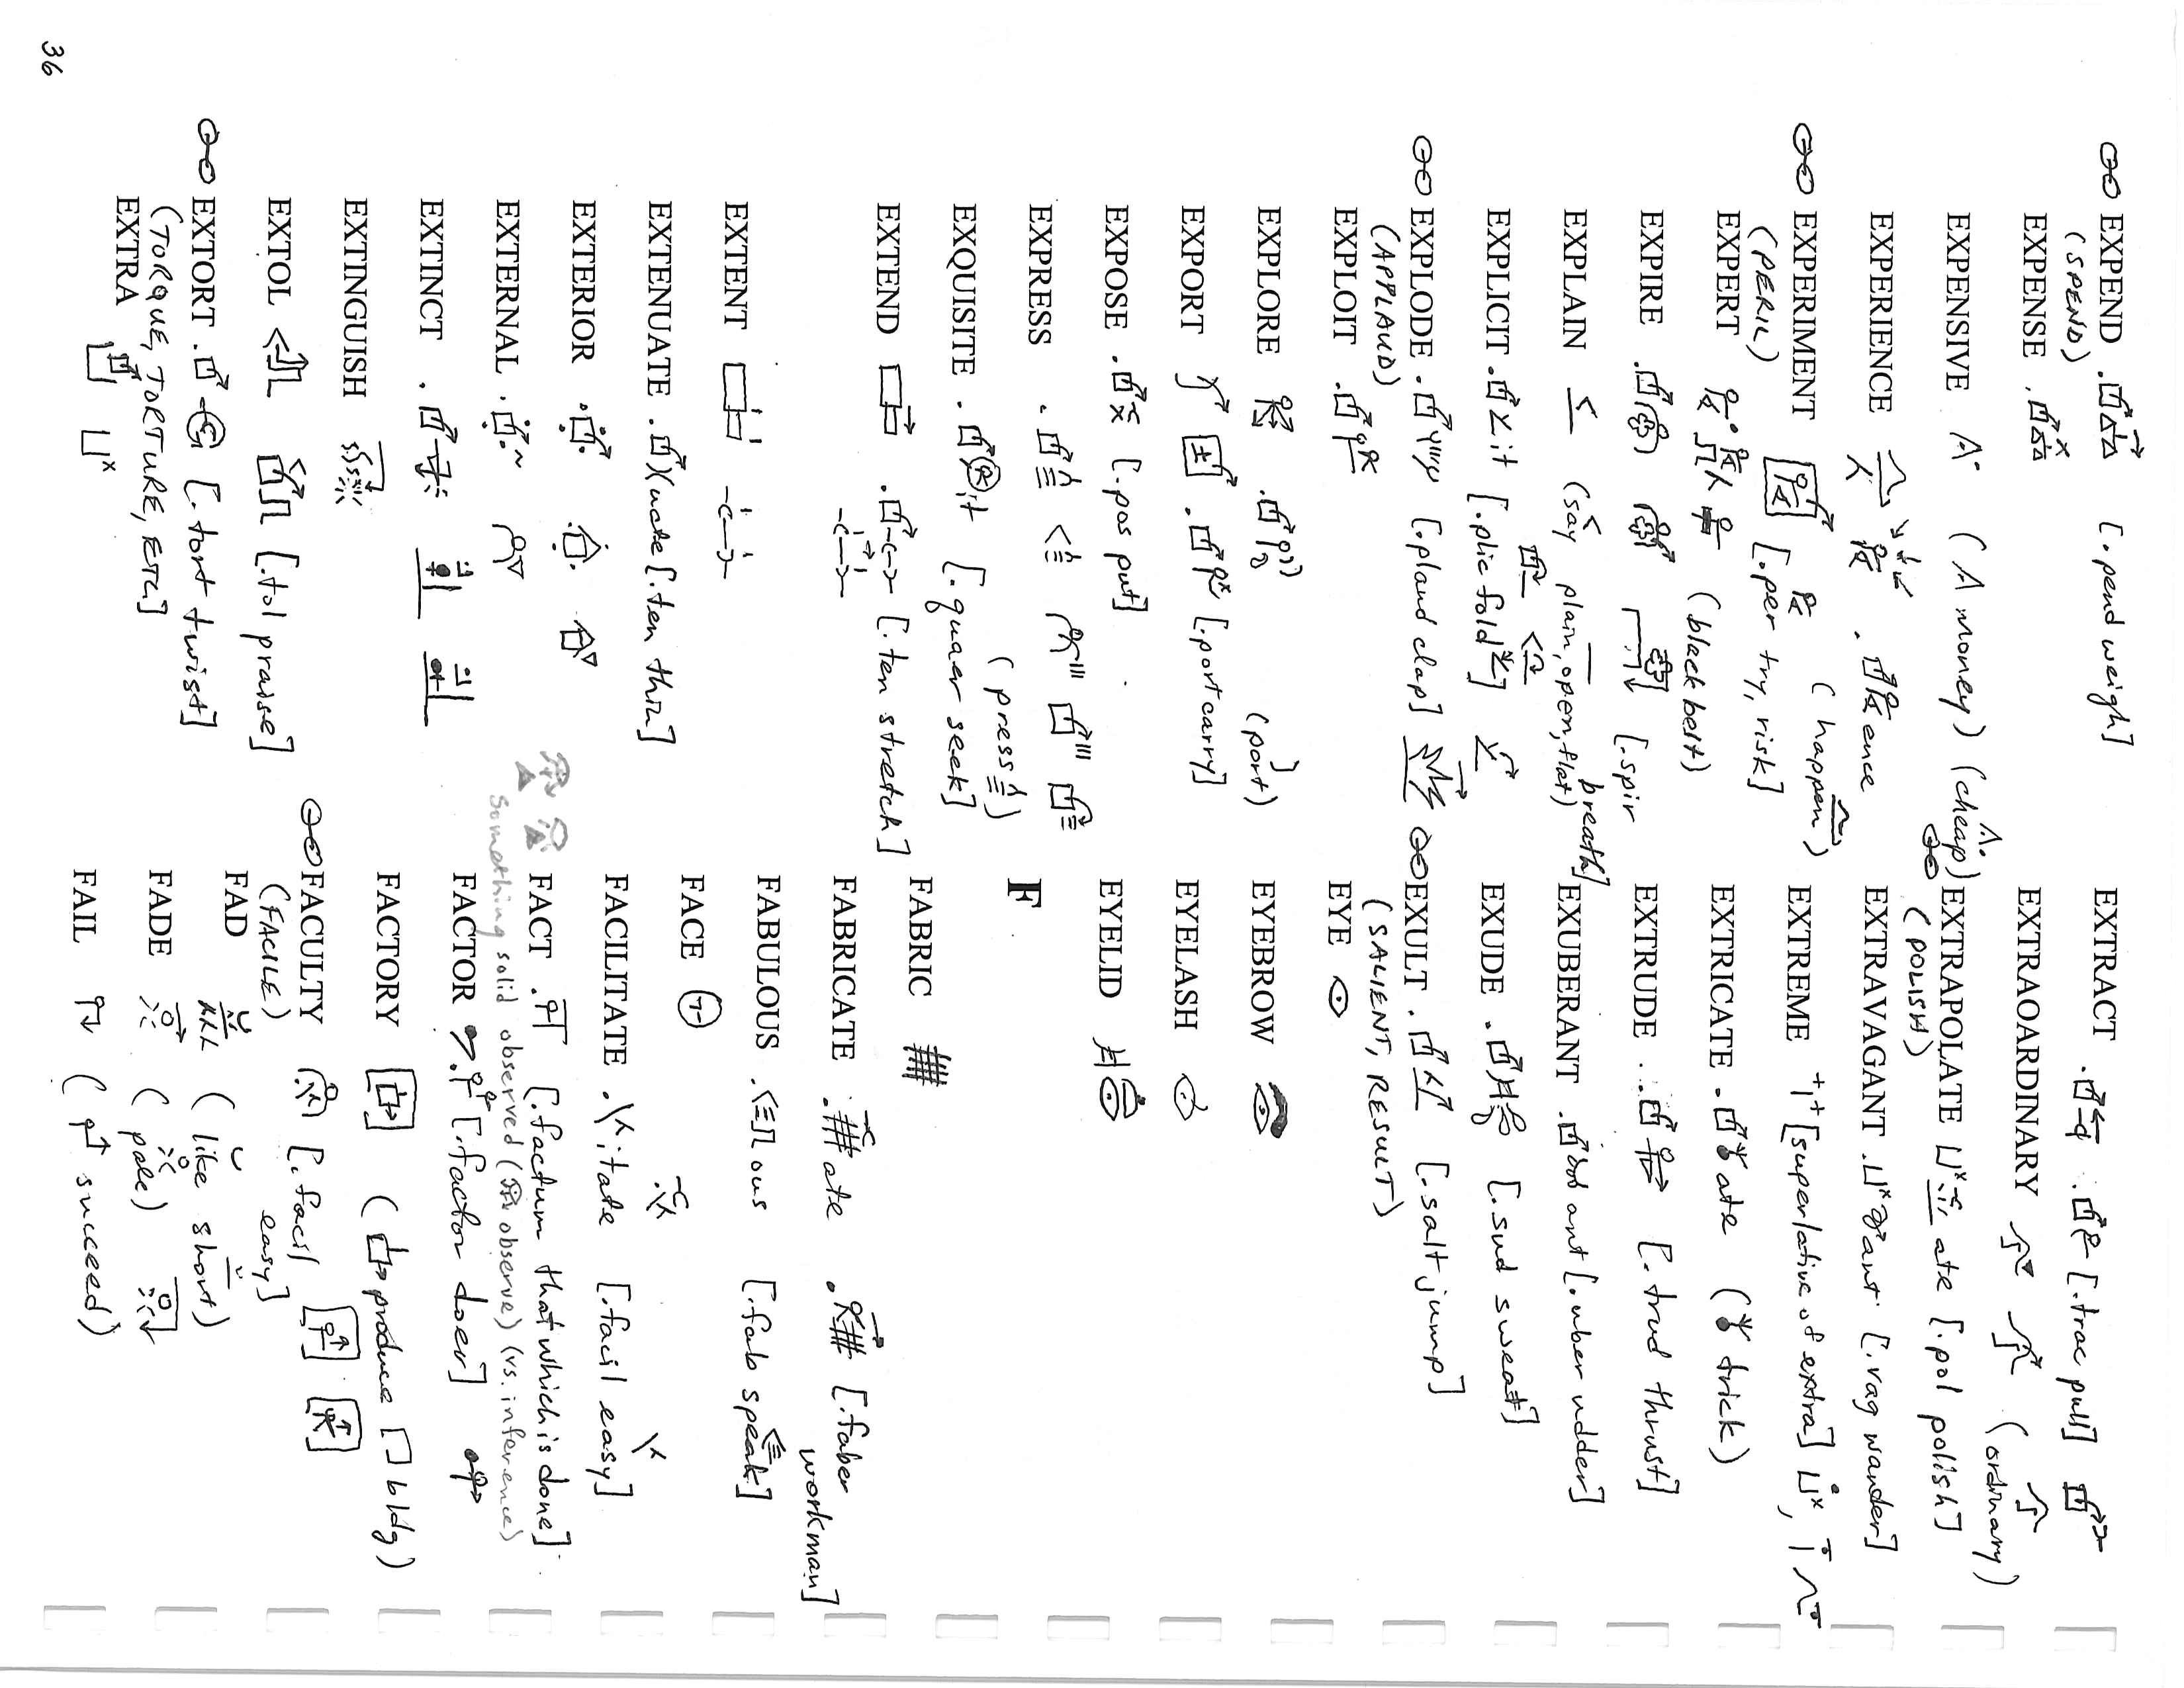 EXPEND [.pend weigh]
(SPEND)
EXPENSE
EXPENSIVE (A money) (cheap)
EXPERIENCE ence
(happen)
EXPERIMENT [.per try, risk]
(PERIL)
EXPERT (black belt)
EXPIRE [.spir
breath]
EXPLAIN (say plain, open, flat)
EXPLICIT it [.plic fold]
EXPLODE [.plaud clap]
(APPLAUD)
EXPLOIT
EXPLORE (port)
EXPORT [.port carry]
EXPOSE [.pos put]
EXPRESS (press)
EXQUISITE it [.quaer seek]
EXTEND [.ten stretch]
EXTENT
EXTENUATE uate [.ten thin]
EXTERIOR
EXTERNAL
EXTINCT
EXTINGUISH
EXTOL [.tol praise]
EXTORT [.tort twist]
(TORQUE, TORTURE, ETC]
EXTRA
EXTRACT [.trac pull]
EXTRAOARDINARY (ordinary)
EXTRAPOLATE ate [.pol polish]
(POLISH)
EXTRAVAGANT ant [.vag wander]
EXTREME [superlative of extra]
EXTRICATE ate (trick)
EXTRUDE [.trud thrust]
EXUBERANT ant [.uber udder]
EXUDE [.sud sweat]
EXULT [.salt jump]
(SALIENT, RESULT)
EYE
EYEBROW
EYELASH
EYELID
F
FABRIC
FABRICATE ate [.faber
workman]
FABULOUS ous [.fab speak]
FACE
FACILITATE itate [.facil easy]
FACT [.factum that which is done]
Something solid observed (observe) (vs. inference)
FACTOR [.factor doer]
FACTORY (produce bldg)
FACULTY [.facil easy]
(FACILE)
FAD (like short)
FADE (pale)
FAIL (succeed)
36